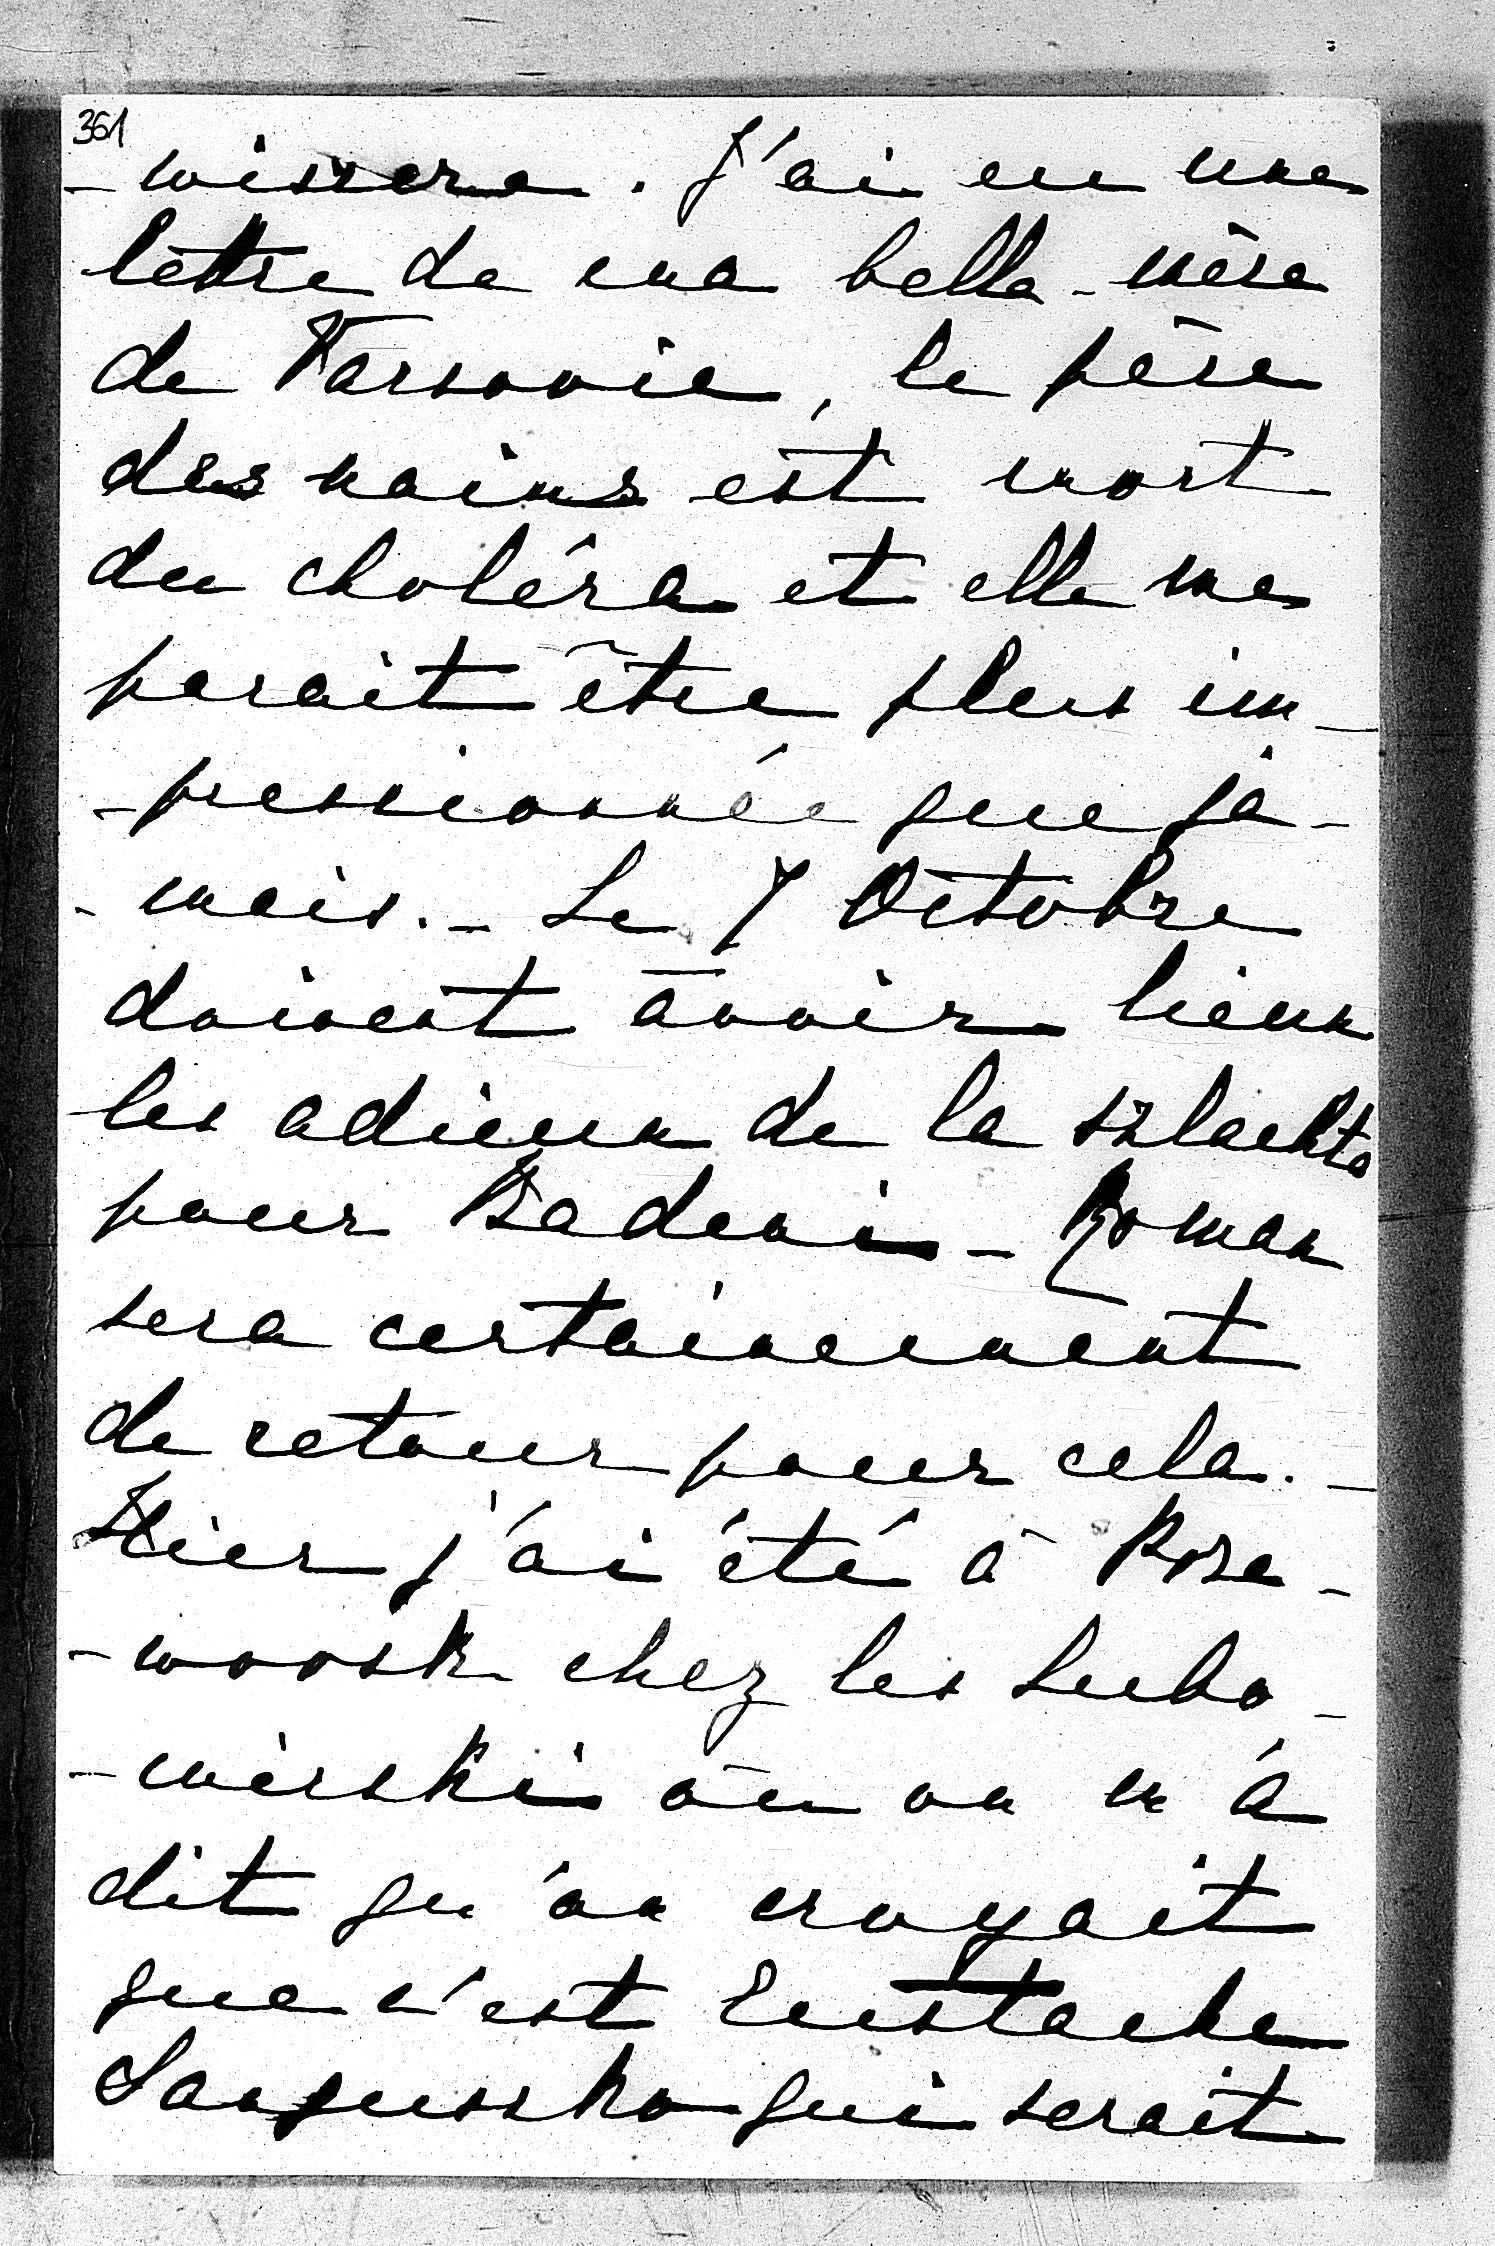 361
- wissera. J'ai eu une
lettre de ma belle-mère
de Varsovie, le père
des nains est mort
du choléra et elle me
parait être plus im-
-pressionnée que ja-
-mais. - Le 7 Octobre
doivent avoir lieux
les adieux de la szlachta
pour Badeni - Roman
sera certainement
de retour pour cela. -
Hier j'ai été à Roze-
-woosk chez les Lubo-
-mirski où on m'a
dit qu'on croyait
que c'est Eustache
Sanguszko qui serait